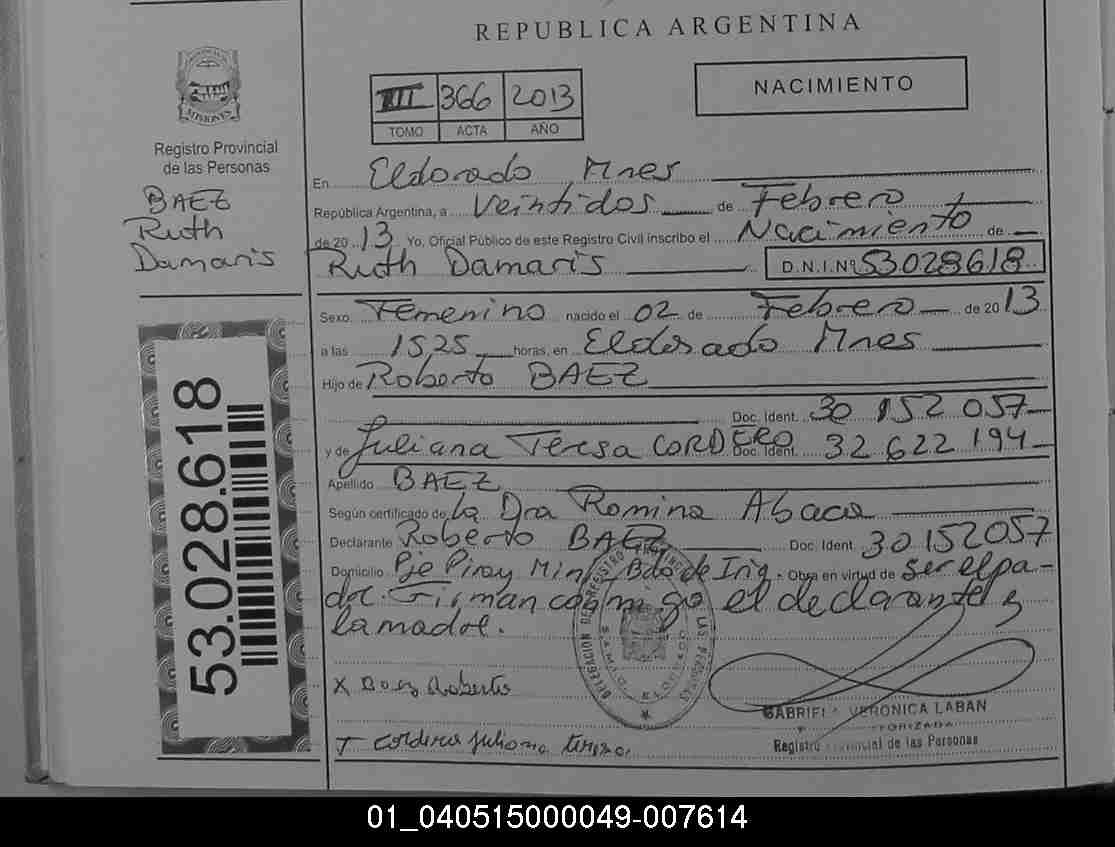 REPUBLICA ARGENTINA
PROVINCIA DE
MISIONES
Registro Provincial
de las Personas
BAEZ
Ruth
Damaris
53.028.618
III 366 2013
TOMO ACTA AÑO
NACIMIENTO
En Eldorado Mnes
República Argentina, a Veintidos de Febrero
de 20 13 Yo, Oficial Público de este Registro Civil inscribo el Nacimiento de
Ruth Damaris D.N.I.Nº 53028618
Sexo Femenino nacido el 02 de Febrero de 20 13
a las 15,25 horas, en Eldorado Mnes
Hijo de Roberto BAEZ
Doc. Ident. 30 152 057
y de Juliana Teresa CORDERO Doc. Ident. 32 622 194
Apellido BAEZ
Según certificado de la Dra Romina Abaca
Declarante Roberto BAEZ Doc. Ident. 30152057
Domicilio Pje Piray Min, Bdo de Irig. Obra en virtud de ser el pa-
dre. Firman conmigo el declarante y
la madre.
X Baez Roberto
+ Cordero Juliana Teresa
DELEGACION DEL REGISTRO PROVINCIAL DE LAS PERSONAS
ELDORADO
GABRIELA VERONICA LABAN
AUTORIZADA
Registro Provincial de las Personas
01_040515000049-007614